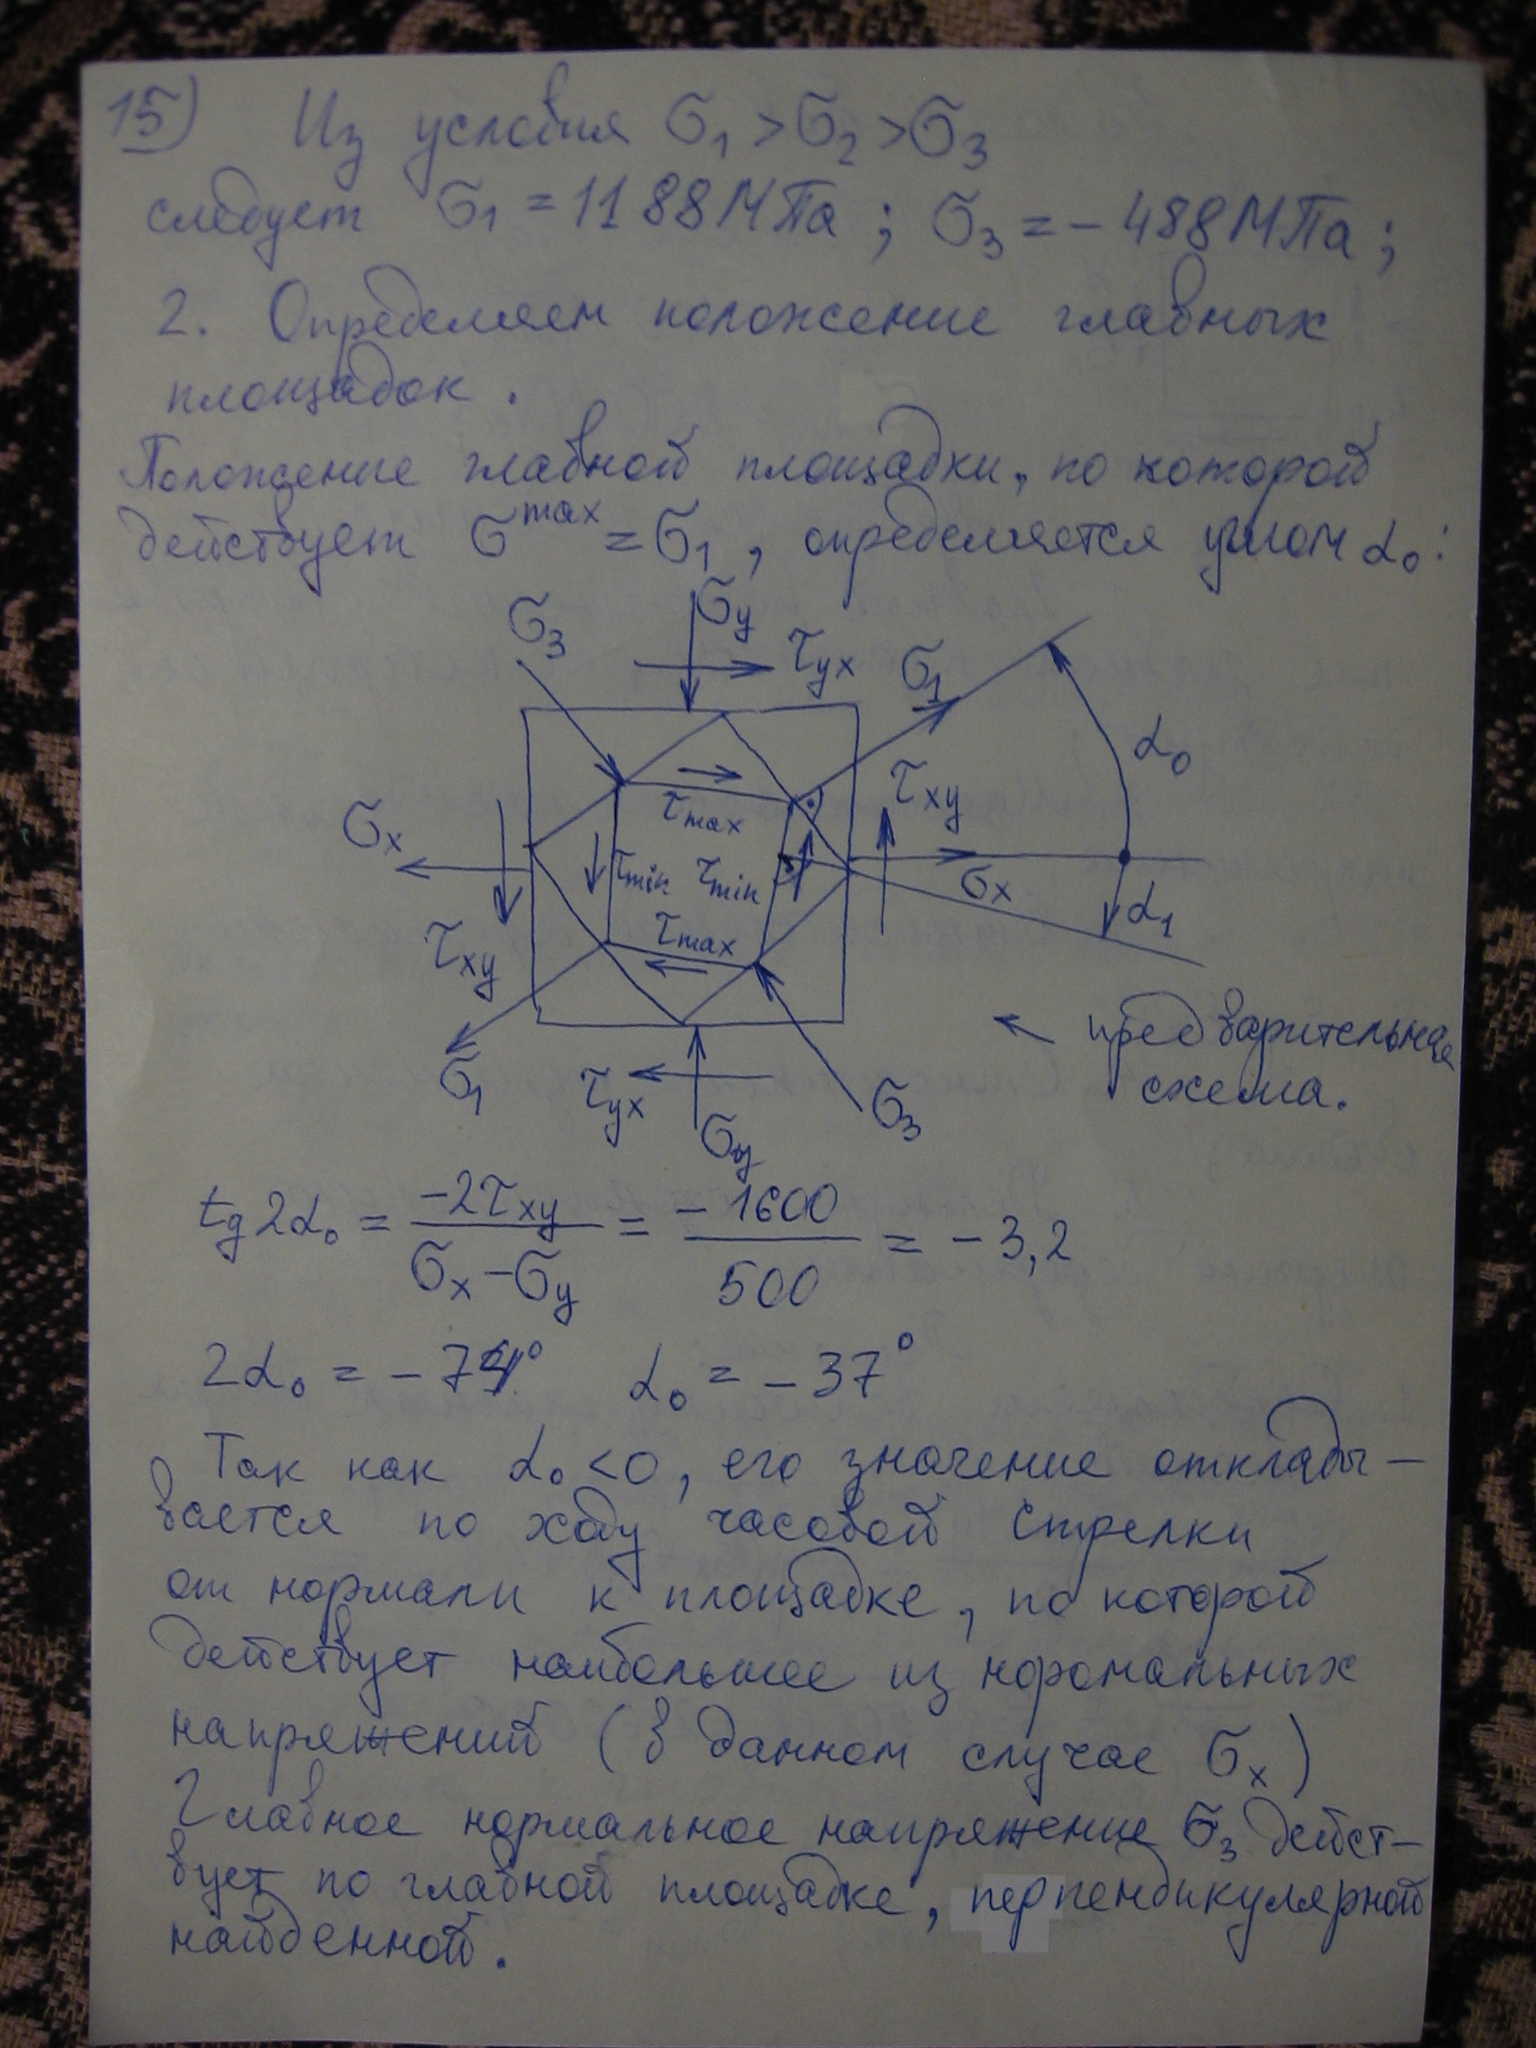 15) Из условия σ1 > σ2 > σ3
следует σ1 = 1188 МПа ; σ3 = - 488 МПа ;
2. Определяем положение главных
площадок .
Положение главной площадки, по которой
действует σ max = σ1 , определяется углом α0 :
σ3 σy τyx σ1 α0
τmax τxy
σx τmin τmin σx α1
τxy τmax
предварительная
схема.
σ1 τyx σy σ3
tg 2α0 = -2τxy / σx - σy = - 1600 / 500 = - 3,2
2α0 = - 74° α0 = - 37°
Так как α0 < 0 , его значение отклады-
вается по ходу часовой стрелки
от нормали к площадке , по которой
действует наибольшее из норомальных
напряжений ( в данном случае σx )
Главное нормальное напряжение σ3 дейст-
вует по главной площадке , перпендикулярной
найденной .